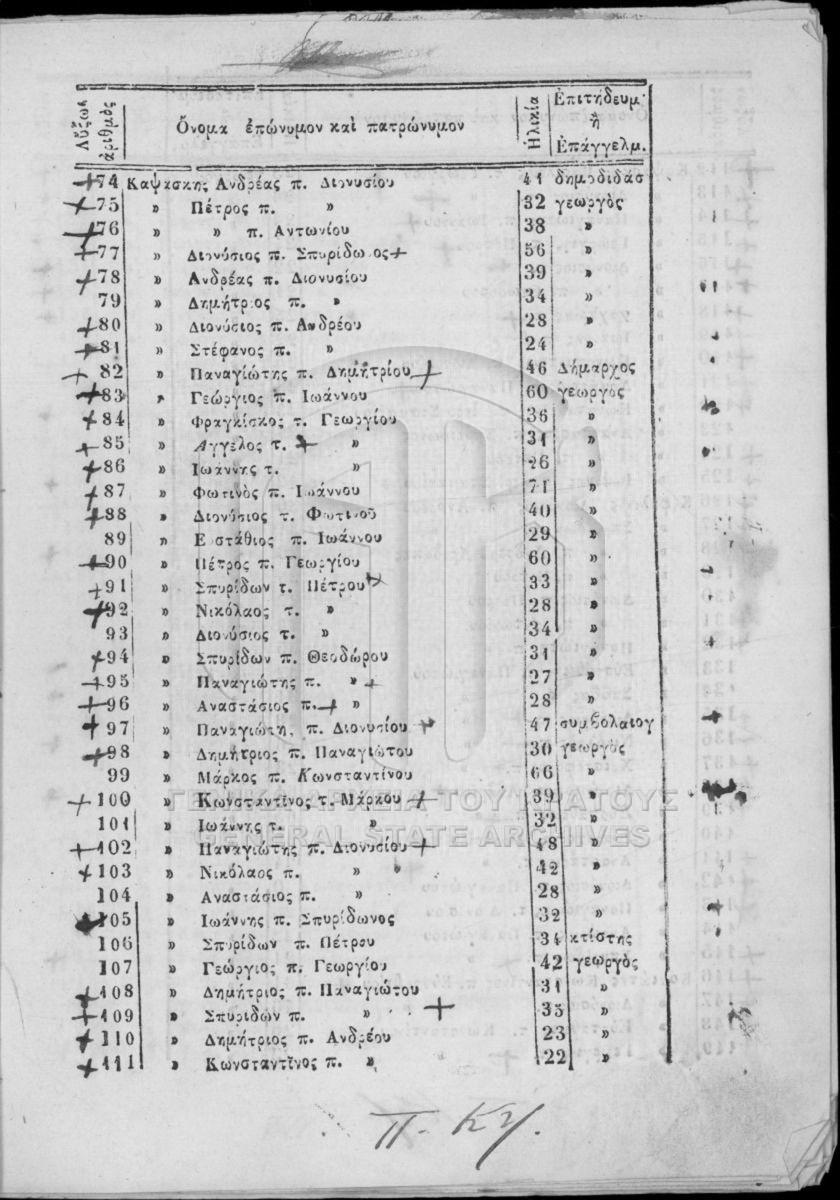 Αὔξων ἀριθμός Ὄνομα ἐπώνυμον καὶ πατρώνυμον Ἡλικία Ἐπιτήδευμ. ἢ Ἐπάγγελμ.
74 Καψάσκης Ἀνδρέας π. Διονυσίου 41 δημοδιδάσ
75 » Πέτρος π. » 32 γεωργὸς
76 » » π. Αντωνίου 38 »
77 » Διονύσιος π. Σπυρίδωνος 56 »
78 » Ανδρέας π. Διονυσίου 39 »
79 » Δημήτριος π. » 34 »
80 » Διονύσιος π. Ανδρέου 28 »
81 » Στέφανος π. » 24 »
82 » Παναγιώτης π. Δημητρίου 46 Δήμαρχος
83 » Γεώργιος π. Ιωάννου 60 γεωργὸς
84 » Φραγκίσκος τ. Γεωργίου 36 »
85 » Αγγελος τ. » 31 »
86 » Ιωάννης τ. » 26 »
87 » Φωτινὸς π. Ιωάννου 71 »
88 » Διονύσιος τ. Φωτινοῦ 40 »
89 » Ευστάθιος π. Ιωάννου 29 »
90 » Πέτρος π. Γεωργίου 60 »
91 » Σπυρίδων τ. Πέτρου 33 »
92 » Νικόλαος τ. » 28 »
93 » Διονύσιος τ. » 34 »
94 » Σπυρίδων π. Θεοδώρου 31 »
95 » Παναγιώτης π. » 27 »
96 » Αναστάσιος π. » 28 »
97 » Παναγιώτη, π. Διονυσίου 47 συμβολαιογ
98 » Δημήτριος π. Παναγιώτου 30 γεωργὸς
99 » Μάρκος π. Κωνσταντίνου 66 »
100 » Κωνσταντῖνος τ. Μάρκου 39 »
101 » Ιωάννης τ. » 32 »
102 » Παναγιώτης π. Διονυσίου 48 »
103 » Νικόλαος π. » 42 »
104 » Αναστάσιος π. » 28 »
105 » Ιωάννης π. Σπυρίδωνος 32 »
106 » Σπυρίδων π. Πέτρου 34 κτίστης
107 » Γεώργιος π. Γεωργίου 42 γεωργὸς
108 » Δημήτριος π. Παναγιώτου 31 »
109 » Σπυρίδων π. » 35 »
110 » Δημήτριος π. Ανδρέου 23 »
111 » Κωνσταντῖνος π. » 22 »
ΓΕΝΙΚΑ ΑΡΧΕΙΑ ΤΟΥ ΚΡΑΤΟΥΣ
GENERAL STATE ARCHIVES